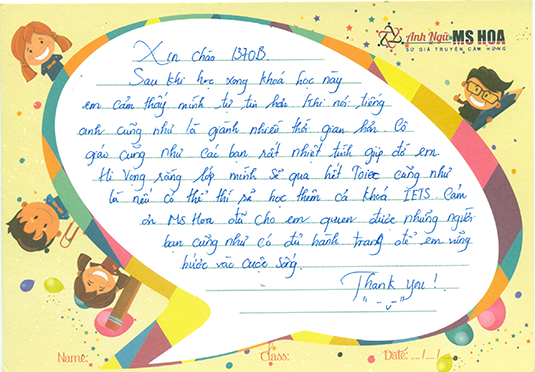 Anh Ngữ MS HOA
SỨ GIẢ TRUYỀN CẢM HỨNG
Xin chào 1370B.
Sau khi học xong khoá học này
em cảm thấy mình tự tin hơn khi nói tiếng
anh cũng như là giành nhiều thời gian hơn. Cô
giáo cũng như các bạn rất nhiệt tình giúp đỡ em
Hi vọng rằng lớp mình sẽ qua hết Toiec cũng như
là nếu có thể thì sẽ học thêm cả khoá IElS Cảm
ơn MS Hoa đã cho em quen được những người
bạn cũng như có đủ hành trang để em vững
bước vào cuộc sống.
Thank you!
Name:
Class:
Date: ..../..../....